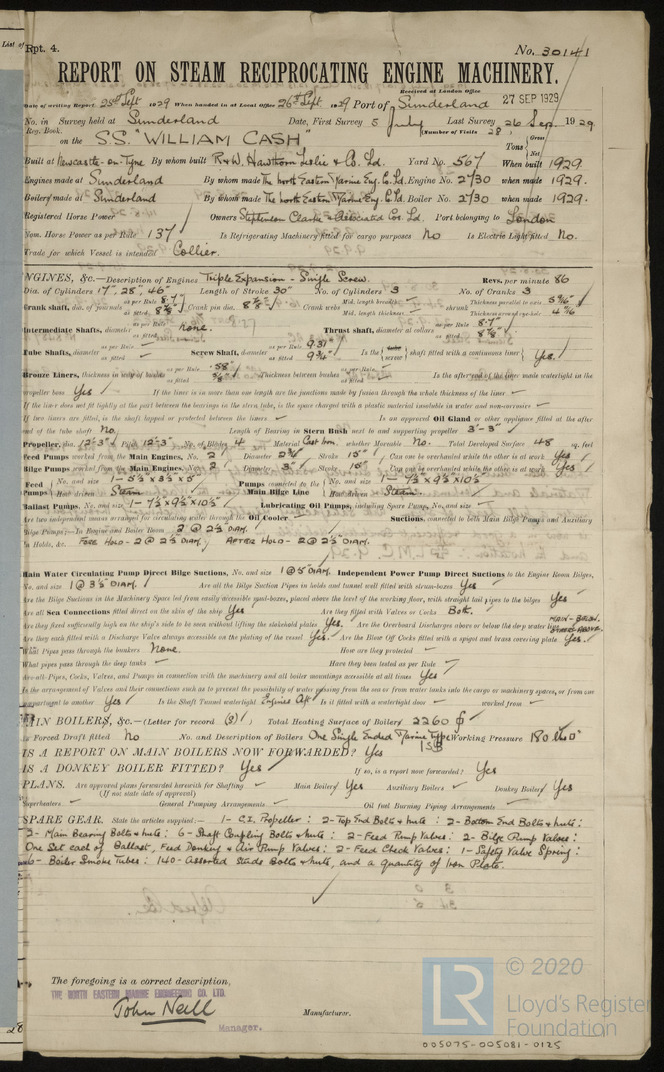 List of
Rpt. 4. No. 30141
REPORT ON STEAM RECIPROCATING ENGINE MACHINERY.
Received at London Office 27 SEP 1929
Date of writing Report 25th Sept 1929 When handed in at Local Office 26th Sept 1929 Port of Sunderland
No. in Survey held at Sunderland Date, First Survey 5 July Last Survey 26 Sep. 1929
Reg. Book. (Number of Visits 28)
on the S.S. "WILLIAM CASH" Tons { Gross Net
Built at Newcastle-on-Tyne By whom built R & W. Hawthorn Leslie & Co. Ld. Yard No. 567 When built 1929
Engines made at Sunderland By whom made The North Eastern Marine Eng. Co. Ld. Engine No. 2730 when made 1929.
Boilers made at Sunderland By whom made The North Eastern Marine Eng. Co. Ld. Boiler No. 2730 when made 1929.
Registered Horse Power Owners Stephenson Clarke & Associated Cos. Ld. Port belonging to London
Nom. Horse Power as per Rule 137 Is Refrigerating Machinery fitted for cargo purposes No Is Electric Light fitted No.
Trade for which Vessel is intended Collier.
ENGINES, &c.—Description of Engines Triple Expansion - Single Screw. Revs. per minute 86
Dia. of Cylinders 17", 28", 46" Length of Stroke 30" No. of Cylinders 3 No. of Cranks 3
Crank shaft, dia. of journals as per Rule 8.77 as fitted 8 7/8" Crank pin dia. 8 7/8" Crank webs Mid. length breadth Mid. length thickness shrunk Thickness parallel to axis 5 9/16" Thickness around eye-hole 4 1/16"
Intermediate Shafts, diameter as per Rule as fitted none. Thrust shaft, diameter at collars as per Rule 8.77 as fitted 8 7/8"
Tube Shafts, diameter as per Rule as fitted Screw Shaft, diameter as per Rule 9.31 as fitted 9 3/4" Is the { tube screw } shaft fitted with a continuous liner { Yes.
Bronze Liners, thickness in way of bushes as per Rule .58" as fitted Thickness between bushes as per Rule as fitted Is the after end of the liner made watertight in the
propeller boss Yes If the liner is in more than one length are the junctions made by fusion through the whole thickness of the liner
If the liner does not fit tightly at the part between the bearings in the stern tube, is the space charged with a plastic material insoluble in water and non-corrosive
If two liners are fitted, is the shaft lapped or protected between the liners Is an approved Oil Gland or other appliance fitted at the after
end of the tube shaft No. Length of Bearing in Stern Bush next to and supporting propeller 3'-3"
Propeller, dia. 12'-3" Pitch 12'-3" No. of Blades 4 Material Cast Iron whether Moveable No. Total Developed Surface 48 sq. feet
Feed Pumps worked from the Main Engines, No. 2 Diameter 2 3/4" Stroke 15" Can one be overhauled while the other is at work Yes
Bilge Pumps worked from the Main Engines, No. 2 Diameter 3" Stroke 15" Can one be overhauled while the other is at work Yes
Feed Pumps { No. and size How driven Steam Pumps connected to the Main Bilge Line { No. and size 1 - 7½ x 9½ x 10½" How driven Steam
Ballast Pumps, No. and size 1 - 7½ x 9½ x 10½" Lubricating Oil Pumps, including Spare Pump, No. and size
Are two independent means arranged for circulating water through the Oil Cooler Suctions, connected to both Main Bilge Pumps and Auxiliary
Bilge Pumps;—In Engine and Boiler Room 2 @ 2½ DIAM.
In Holds, &c. FORE HOLD - 2 @ 2½ DIAM; AFTER HOLD - 2 @ 2½ DIAM.
Main Water Circulating Pump Direct Bilge Suctions, No. and size 1 @ 5" DIAM. Independent Power Pump Direct Suctions to the Engine Room Bilges,
No. and size 1 @ 3½ DIAM. Are all the Bilge Suction Pipes in holds and tunnel well fitted with strum-boxes Yes
Are the Bilge Suctions in the Machinery Space led from easily accessible mud-boxes, placed above the level of the working floor, with straight tail pipes to the bilges Yes
Are all Sea Connections fitted direct on the skin of the ship Yes Are they fitted with Valves or Cocks Both.
Are they fixed sufficiently high on the ship's side to be seen without lifting the stokehold plates Yes. Are the Overboard Discharges above or below the deep water line MAIN - BELOW. ABOVE.
Are they each fitted with a Discharge Valve always accessible on the plating of the vessel Yes. Are the Blow Off Cocks fitted with a spigot and brass covering plate Yes.
What Pipes pass through the bunkers None. How are they protected
What pipes pass through the deep tanks Have they been tested as per Rule
Are all Pipes, Cocks, Valves, and Pumps in connection with the machinery and all boiler mountings accessible at all times Yes
Is the arrangement of Valves and their connections such as to prevent the possibility of water passing from the sea or from water tanks into the cargo or machinery spaces, or from one
compartment to another Yes Is the Shaft Tunnel watertight Engines Aft Is it fitted with a watertight door worked from
MAIN BOILERS, &c.—(Letter for record (S)) Total Heating Surface of Boilers 2260
Is Forced Draft fitted No No. and Description of Boilers One Single Ended Marine Type 1SB Working Pressure 180 lbs
IS A REPORT ON MAIN BOILERS NOW FORWARDED? Yes
IS A DONKEY BOILER FITTED? Yes If so, is a report now forwarded? Yes
PLANS. Are approved plans forwarded herewith for Shafting Main Boilers Yes Auxiliary Boilers Donkey Boilers Yes
(If not state date of approval)
Superheaters General Pumping Arrangements Oil fuel Burning Piping Arrangements
SPARE GEAR. State the articles supplied:— 1 - C.I. Propeller: 2 - Top End Bolts & nuts: 2 - Bottom End Bolts & nuts:
2 - Main Bearing Bolts & nuts: 6 - Shaft Coupling Bolts & nuts: 2 - Feed Pump Valves: 2 - Bilge Pump Valves:
One Set each of Ballast, Feed Donkey & Air Pump Valves: 2 - Feed Check Valves: 1 - Safety Valve Spring:
6 - Boiler Smoke Tubes: 140 - Assorted Studs Bolts & nuts, and a quantity of Iron Plate.
The foregoing is a correct description,
THE NORTH EASTERN MARINE ENGINEERING CO. LTD.
John Neill Manufacturer.
Manager.
© 2020
LR Lloyd's Register
Foundation
005075-005081-0125